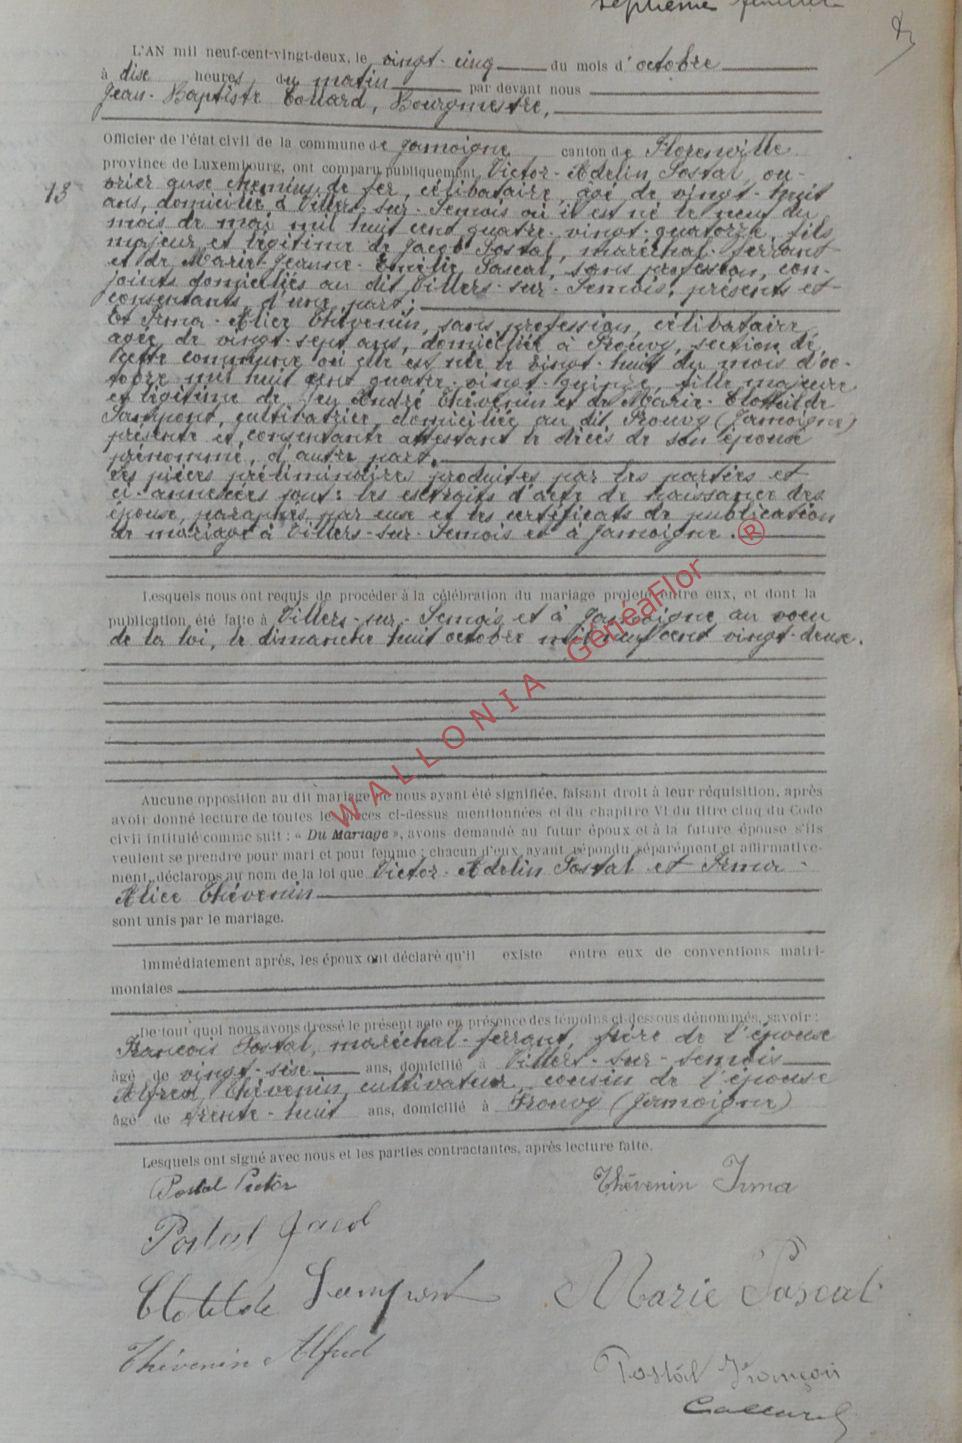 septième feuillet
L'AN mil neuf-cent-vingt-deux, le vingt-cinq du mois d'octobre
à dix heures, du matin par devant nous
Jean-Baptiste Collard, Bourgmestre,
Officier de l'état civil de la commune de Jamoigne canton de Florenville
province de Luxembourg, ont comparu publiquement Victor-Adelin Postal, ou-
13 vrier aux chemins de fer, célibataire, âgé de vingt-huit
ans, domicilié à Villers-sur-Semois où il est né le neuf du
mois de mai mil huit cent quatre-vingt-quatorze, fils
majeur et légitime de Jacob Postal, maréchal-ferrant
et de Marie-Jeanne-Emélie Pascal, sans profession, con-
joints domiciliés au dit Villers-sur-Semois, présents et
consentants, d'une part;
Et Irma-Alice Thévenin, sans profession, célibataire,
âgée de vingt-sept ans, domiciliée à Prouvy, section de
cette commune où elle est née le vingt-huit du mois d'oc-
tobre mil huit cent quatre-vingt-quinze, fille majeure
et légitime de feu André Thévenin et de Marie-Clothilde
Sampont, cultivatrice, domiciliée au dit Prouvy (Jamoigne)
présente et consentante attestant le décès de son épouse
prénommé, d'autre part.
Les pièces préliminaires produites par les parties et
ci-annexées sont: les extraits d'acte de naissance des
époux, paraphés par eux et les certificats de publication
de mariage à Villers-sur-Semois et à Jamoigne.
Lesquels nous ont requis de procéder à la célébration du mariage projeté entre eux, et dont la
publication été faite à Villers-sur-Semois et à Jamoigne au voeu
de la loi, le dimanche huit octobre mil neuf cent vingt-deux.
WALLONIA GénéaFlor ®
Aucune opposition au dit mariage ne nous ayant été signifiée, faisant droit à leur réquisition, après
avoir donné lecture de toutes les pièces ci-dessus mentionnées et du chapitre VI du titre cinq du Code
civil intitulé comme suit : « Du Mariage », avons demandé au futur époux et à la future épouse s'ils
veulent se prendre pour mari et pour femme ; chacun d'eux ayant répondu séparément et affirmative-
ment, déclarons au nom de la loi que Victor-Adelin Postal et Irma-
Alice Thévenin
sont unis par le mariage.
Immédiatement après, les époux ont déclaré qu'il existe entre eux de conventions matri-
moniales
De tout quoi nous avons dressé le présent acte en présence des témoins ci-dessous dénommés, savoir :
François Postal, maréchal-ferrant, frère de l'épouse
âgé de vingt-six ans, domicilié à Villers-sur-Semois
Alfred Thévenin, cultivateur, cousin de l'épouse
âgé de trente-huit ans, domicilié à Prouvy (Jamoigne)
Lesquels ont signé avec nous et les parties contractantes, après lecture faite.
Postal Victor Thévenin Irma
Postal Jacob
Clotilde Sampont Marie Pascal
Thévenin Alfred
Postal François
Collard